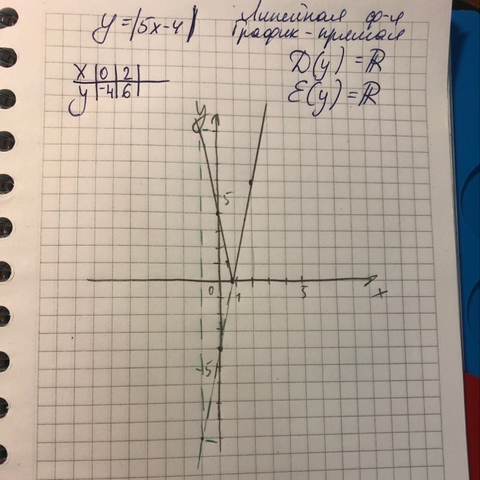 y = |5x-4| Линейная ф-я
График - прямая
D(y) = ℝ
E(y) = ℝ
x | 0 | 2
y | -4 | 6
y
5
0 1 5 x
5